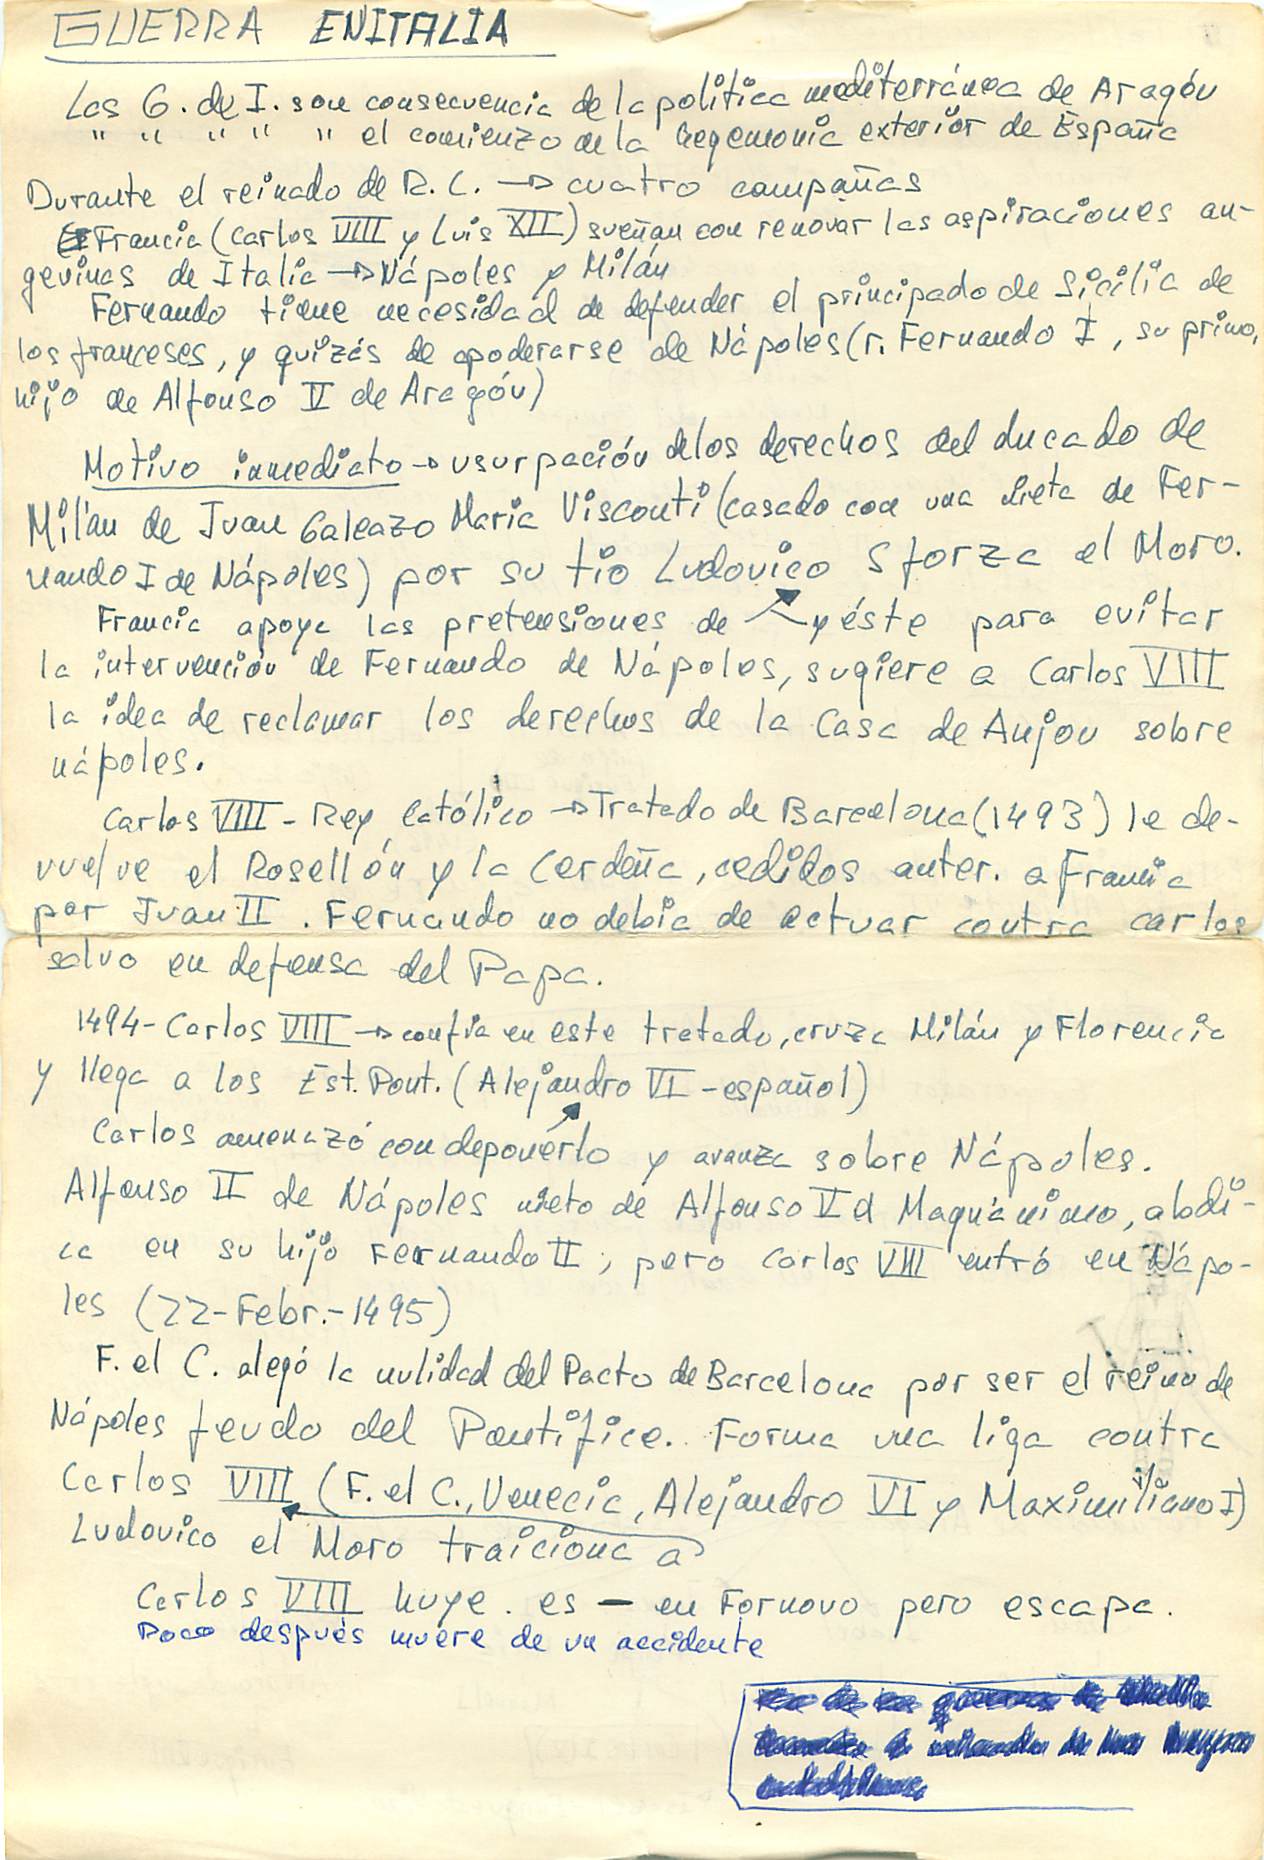 GUERRA EN ITALIA
Las G. de I. son consecuencia de la politica mediterránea de Aragón
" " " " " el comienzo de la hegemonia exterior de España
Durante el reinado de R. C. → cuatro campañas
Francia (Carlos VIII y Luis XII) sueñan con renovar las aspiraciones an-
gevinas de Italia → Nápoles y Milán
Fernando tiene necesidad de defender el principado de Sicilia de
los franceses, y quizás de apoderarse de Nápoles (r. Fernando I, su primo,
hijo de Alfonso V de Aragón)
Motivo inmediato → usurpación de los derechos del ducado de
Milán de Juan Galeazo Maria Visconti (casado con una nieta de Fer-
nando I de Nápoles) por su tio Ludovico Sforza el Moro.
Francia apoya las pretensiones de y éste para evitar
la intervención de Fernando de Nápoles, sugiere a Carlos VIII
la idea de reclamar los derechos de la Casa de Anjou sobre
nápoles.
Carlos VIII - Rey Católico → Tratado de Barcelona (1493) le de-
vuelve el Rosellón y la Cerdeña, cedidos anter. a Francia
por Juan II. Fernando no debia de actuar contra Carlos
salvo en defensa del Papa.
1494 - Carlos VIII → confia en este tratado, cruza Milán y Florencia
y llega a los Est. Pont. (Alejandro VI - español)
Carlos amenazó con deponerlo y avanza sobre Nápoles.
Alfonso II de Nápoles nieto de Alfonso V el Magnánimo, abdi-
ca en su hijo Fernando II, pero Carlos VIII entró en Nápo-
les (22-Febr.-1495)
F. el C. alegó la nulidad del Pacto de Barcelona por ser el reino de
Nápoles feudo del Pontifice. Forma una liga contra
Carlos VIII (F. el C., Venecia, Alejandro VI y Maximiliano I)
Ludovico el Moro traiciona a
Carlos VIII huye. es — en Fornovo pero escapa.
Poco después muere de un accidente